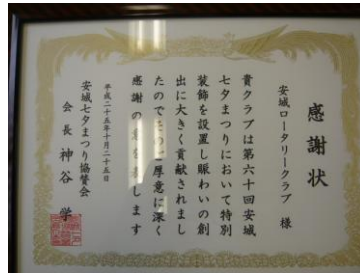 感謝状
安城ロータリークラブ 様
貴クラブは第六十回安城
七夕まつりにおいて特別
装飾を設置し賑わいの創
出に大きく貢献されまし
たのでそのご厚意に深く
感謝の意を表します
平成二十五年十月二十五日
安城七夕まつり協賛会
会長 神谷 学